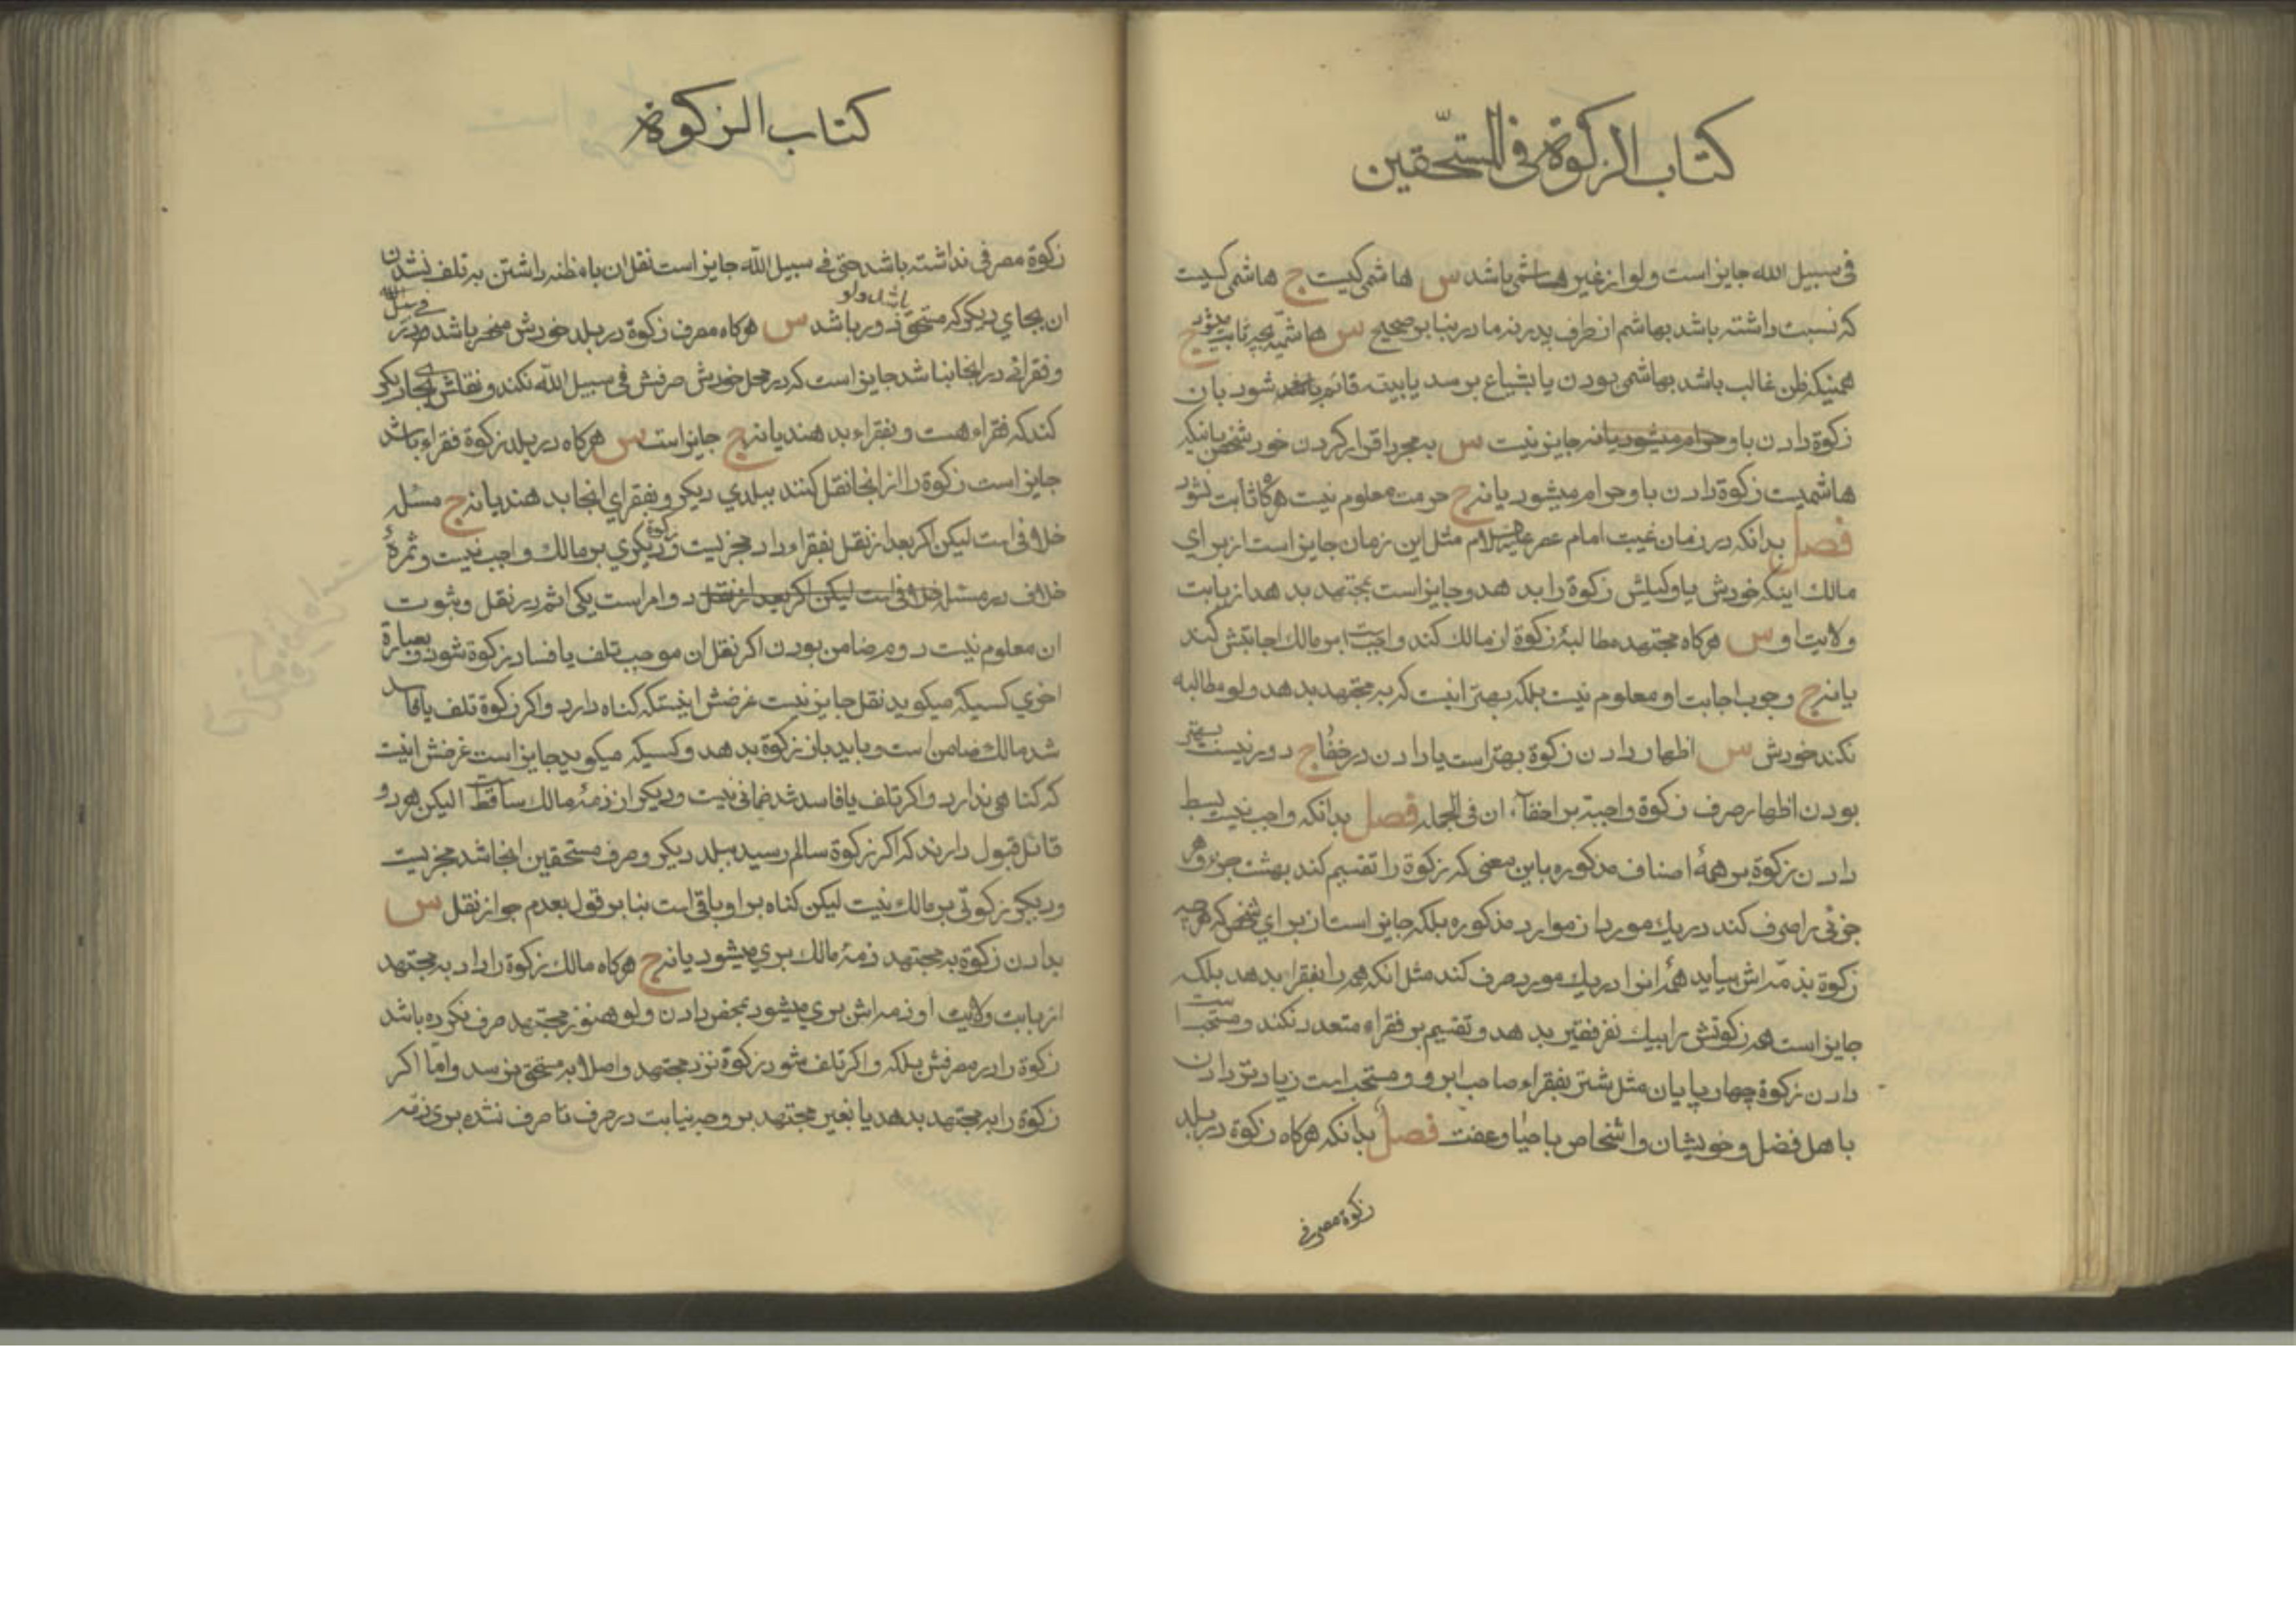 کتاب الزکوة فی المستحقین
فی سبیل الله جایز است ولو از غیر هاشمی باشد س هاشمی کیست ج هاشمی کیست
که نسبت داشته باشد بهاشم از طرف پدر نه مادر بنا بر صحیح س هاشمیه بچه ثابت میشود ج
همینکه ظن غالب باشد بهاشمی بودن یا بشیاع برسد یا بینه قائم شود بان
زکوة دادن باو حرام میشود یا نه جایز نیست س بمجرد اقرار کردن خود شخص باینکه
هاشمیست زکوة دادن باو حرام میشود یا نه ج حرمت معلوم نیست هرگاه ثابت نشود
فصل بدانکه در زمان غیبت امام عصر علیه السلام مثل این زمان جایز است از برای
مالک اینکه خودش یا وکیلش زکوة را بدهد و جایز است بمجتهد بدهد از بابت
ولایت او س هرگاه مجتهد مطالبۀ زکوة از مالک کند واجبست بر مالک اجابتش کند
یا نه ج وجوب اجابت او معلوم نیست بلکه بهتر اینست که به مجتهد بدهد ولو مطالبه
نکند خودش س اظهار دادن زکوة بهتر است یا دادن در خفا ج دور نیست بهتر
بودن اظهار صرف زکوة واجبة بر اخفآء ان فی الجمله فصل بدانکه واجب نیست بسط
دادن زکوة بر همۀ اصناف مذکوره باین معنی که زکوة را تقسیم کند بهشت جزء و هر
جزئی را صرف کند در یک مورد از موارد مذکوره بلکه جایز است از برای شخص که هر چه
زکوة بذمه اش میاید همه انرا در یک مورد صرف کند مثل انکه همه را بفقرا بدهد بلکه
جایز است همه زکوتش را بیک نفر فقیر بدهد و تقسیم بر فقراء متعدد نکند و مستحب است
دادن زکوة چهار پایان مثل شتر بفقراء صاحب ابرو و مستحب است زیادتر دادن
باهل فضل و خویشان و اشخاص با حیا و عفت فصل بدانکه هرگاه زکوة در بلد
زکوة مصرفی
کتاب الزکوة
زکوة مصرفی نداشته باشد حتی فی سبیل الله جایز است نقل ان با مظنه داشتن به تلف نشدن
ان بجای دیگر که مستحق باشد ولو دور باشد س هرگاه مصرف زکوة در بلد خودش منحصر باشد در فی سبیل الله
و فقرائی در انجا نباشد جایز است که در محل خودش صرفش فی سبیل الله نکند و نقلش بجای دیگر
کند که فقراء هست و بفقراء بدهند یا نه ج جایز است س هرگاه در بلد زکوة فقراء باشد
جایز است زکوة را از انجا نقل کنند ببلدی دیگر و بفقرای انجا بدهند یا نه ج مسئله
خلافی است لیکن اگر بعد از نقل بفقراء داد مجزیست و زکوة دیگری بر مالک واجب نیست و ثمرۀ
خلاف در مسئله خلافی است لیکن اگر بعد از نقل دو امر است یکی اثم در نقل و ثبوت
ان معلوم نیست دوم ضامن بودن اگر نقل ان موجب تلف یا فساد زکوة شود و بعبارة
اخری کسیکه میگوید نقل جایز نیست غرضش اینستکه گناه دارد و اگر زکوة تلف یا فاسد
شد مالک ضامن است و باید باز زکوة بدهد و کسیکه میگوید جایز است غرضش اینست
که گناهی ندارد و اگر تلف یا فاسد شد ضمانی نیست و دیگر از ذمۀ مالک ساقط است لیکن هر دو
قائل قبول دارند که اگر زکوة سالم رسید ببلد دیگر و صرف مستحقین انجا شد مجزیست
و دیگر زکوتی بر مالک نیست لیکن گناه بر او باقی است بنا بر قول بعدم جواز نقل س
بدادن زکوة به مجتهد ذمۀ مالک بری میشود یا نه ج هرگاه مالک زکوة را داد به مجتهد
از بابت ولایت او ذمه اش بری میشود بمحض دادن ولو هنوز مجتهد صرف نکرده باشد
زکوة را در مصرفش بلکه و اگر تلف شود زکوة نزد مجتهد و اصلا به مستحق نرسد و اما اگر
زکوة را به مجتهد بدهد یا بغیر مجتهد بر وجه نیابت در صرف تا صرف نشده بری ذمه